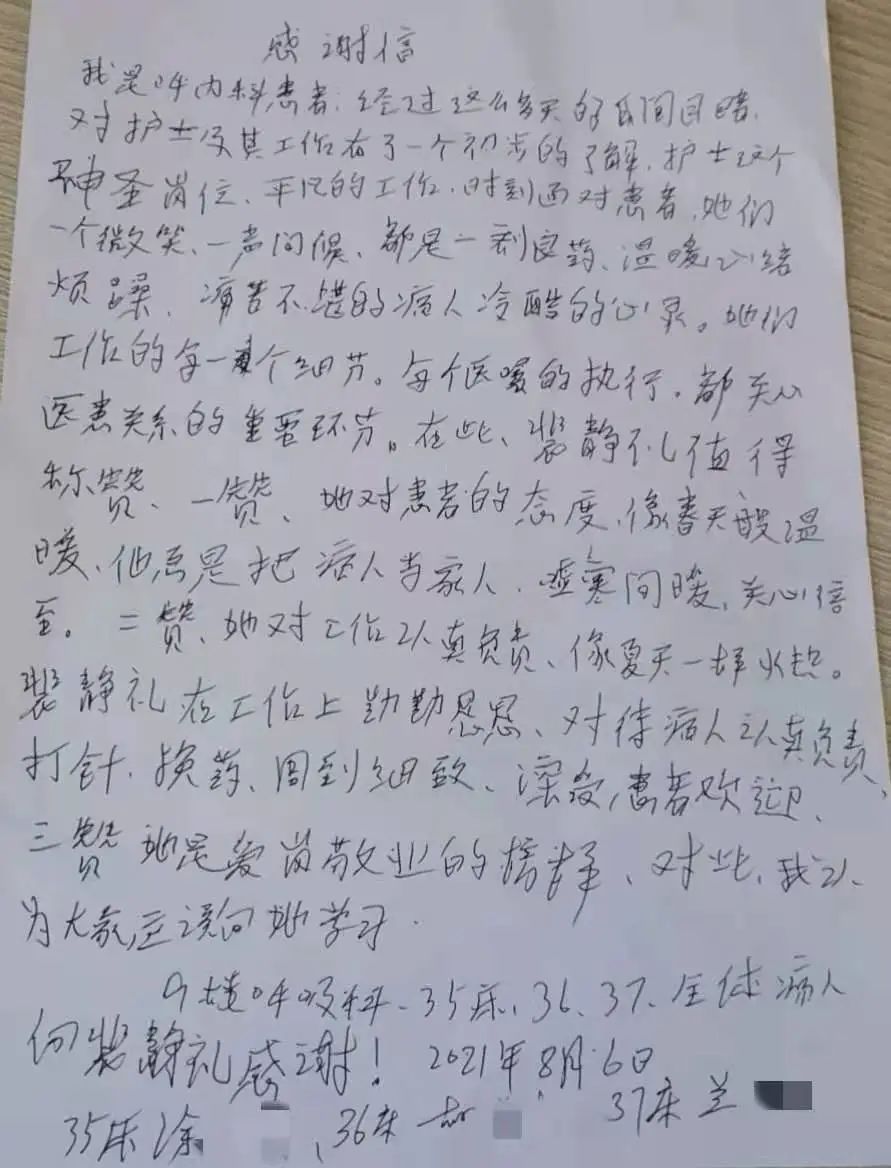 感谢信
我是呼内科患者,经过这么多天的日间目睹,
对护士及其工作有了一个初步的了解,护士这个
神圣岗位、平凡的工作,时刻面对患者,她们
一个微笑、一声问候、都是一剂良药、温暖心绪
烦躁、痛苦不堪的病人冷酷的心灵。她们
工作的每一个细节。每个医嘱的执行,都关心
医患关系的重要环节。在此、裴静礼值得
称赞、一赞、她对患者的态度,像春天般温
暖、他总是把病人当家人、嘘寒问暖,关心倍
至。二赞、她对工作认真负责、像夏天一样火热。
裴静礼在工作上勤勤恳恳、对待病人认真负责、
打针、换药、周到细致、深受患者欢迎、
三赞她是爱岗敬业的榜样、对此,我认
为大家应该向她学习.
9楼呼吸科、35床、36、37、全体病人
向裴静礼感谢! 2021年8月6日
35床涂 、36床 37床兰